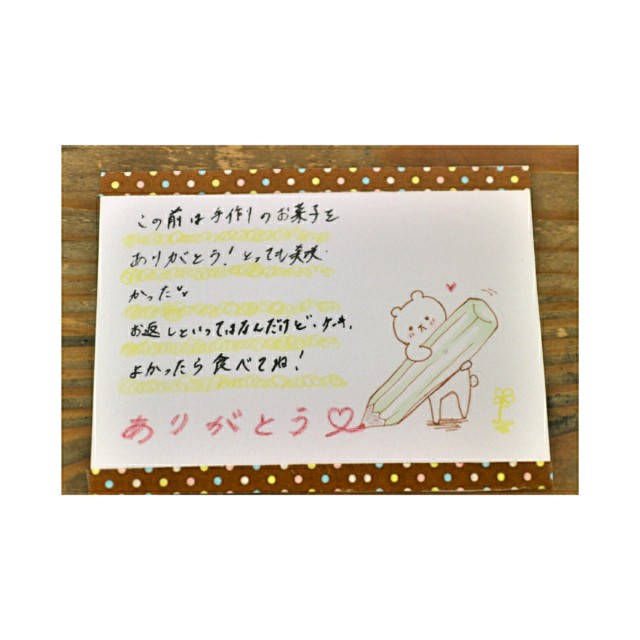 この前は手作りのお菓子を
ありがとう！とっても美味
かった
お返しといってはなんだけど、クッキー、
よかったら食べてね！
ありがとう♡